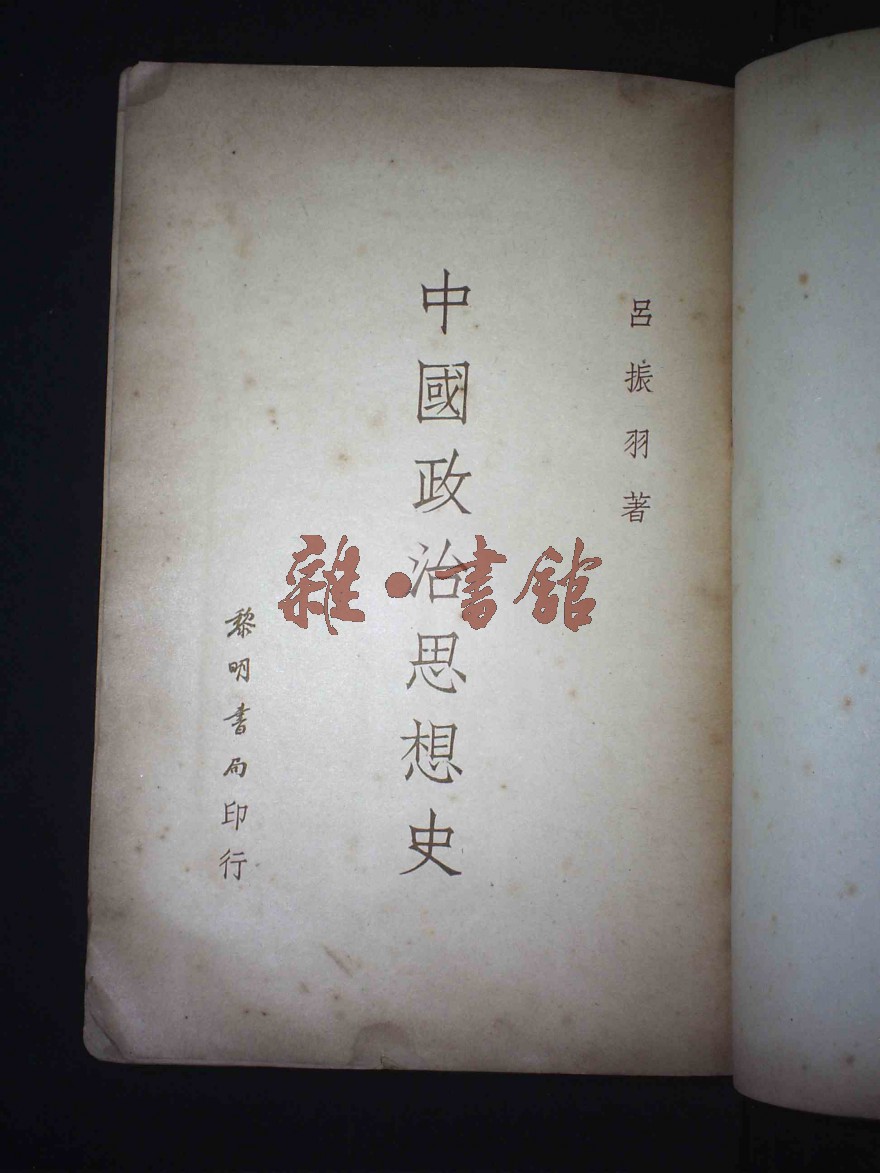 呂振羽著
中國政治思想史
黎明書局印行
雜·書館